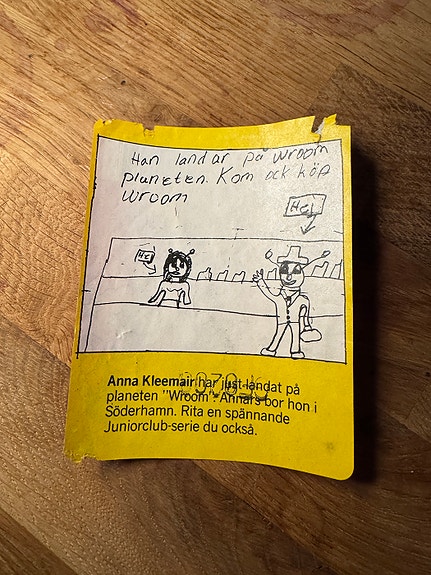 Han landar på wroom
planeten. Kom ock köp
wroom
Hej
Hej
Anna Kleemair har just landat på
planeten "Wroom". Annars bor hon i
Söderhamn. Rita en spännande
Juniorclub-serie du också.